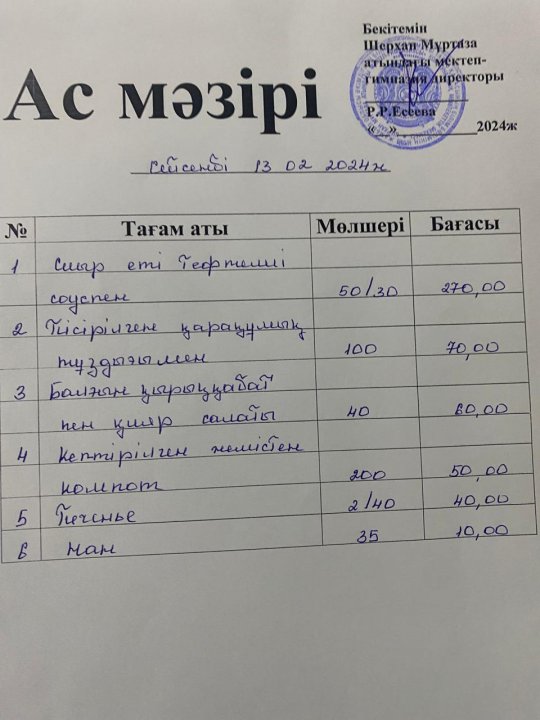 Бекітемін
Шерхан Мұртаза
атындағы мектеп-
гимназия директоры
Р.Р.Есеева
«__»____________2024ж
Ас мәзірі
Сейсенбі 13 02 2024ж
№ Тағам аты Мөлшері Бағасы
1 Сиыр еті Тефтелиі
соуспен 50/30 270,00
2 Пісірілген қарақұмық
тұздығымен 100 70,00
3 Балғын қырыққабат
пен қияр салаты 40 60,00
4 Кептірілген жемістен
компот 200 50,00
5 Печенье 2/40 40,00
6 Нан 35 10,00